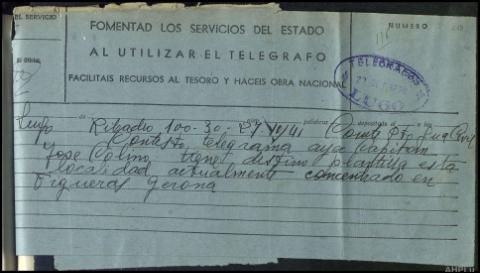 EL SERVICIO
FOMENTAD LOS SERVICIOS DEL ESTADO
NUMERO
AL UTILIZAR EL TELEGRAFO
FACILITAIS RECURSOS AL TESORO Y HACEIS OBRA NACIONAL
TELEGRAFOS
LUGO
Lugo de Ribadeo 100-30-27 palabras depositado el a las
Contesto telegrama ayer Capitan
Jose Calmo, tiene destino plantilla esta
localidad actualmente concentrado en
Figueras Gerona
AHPLU